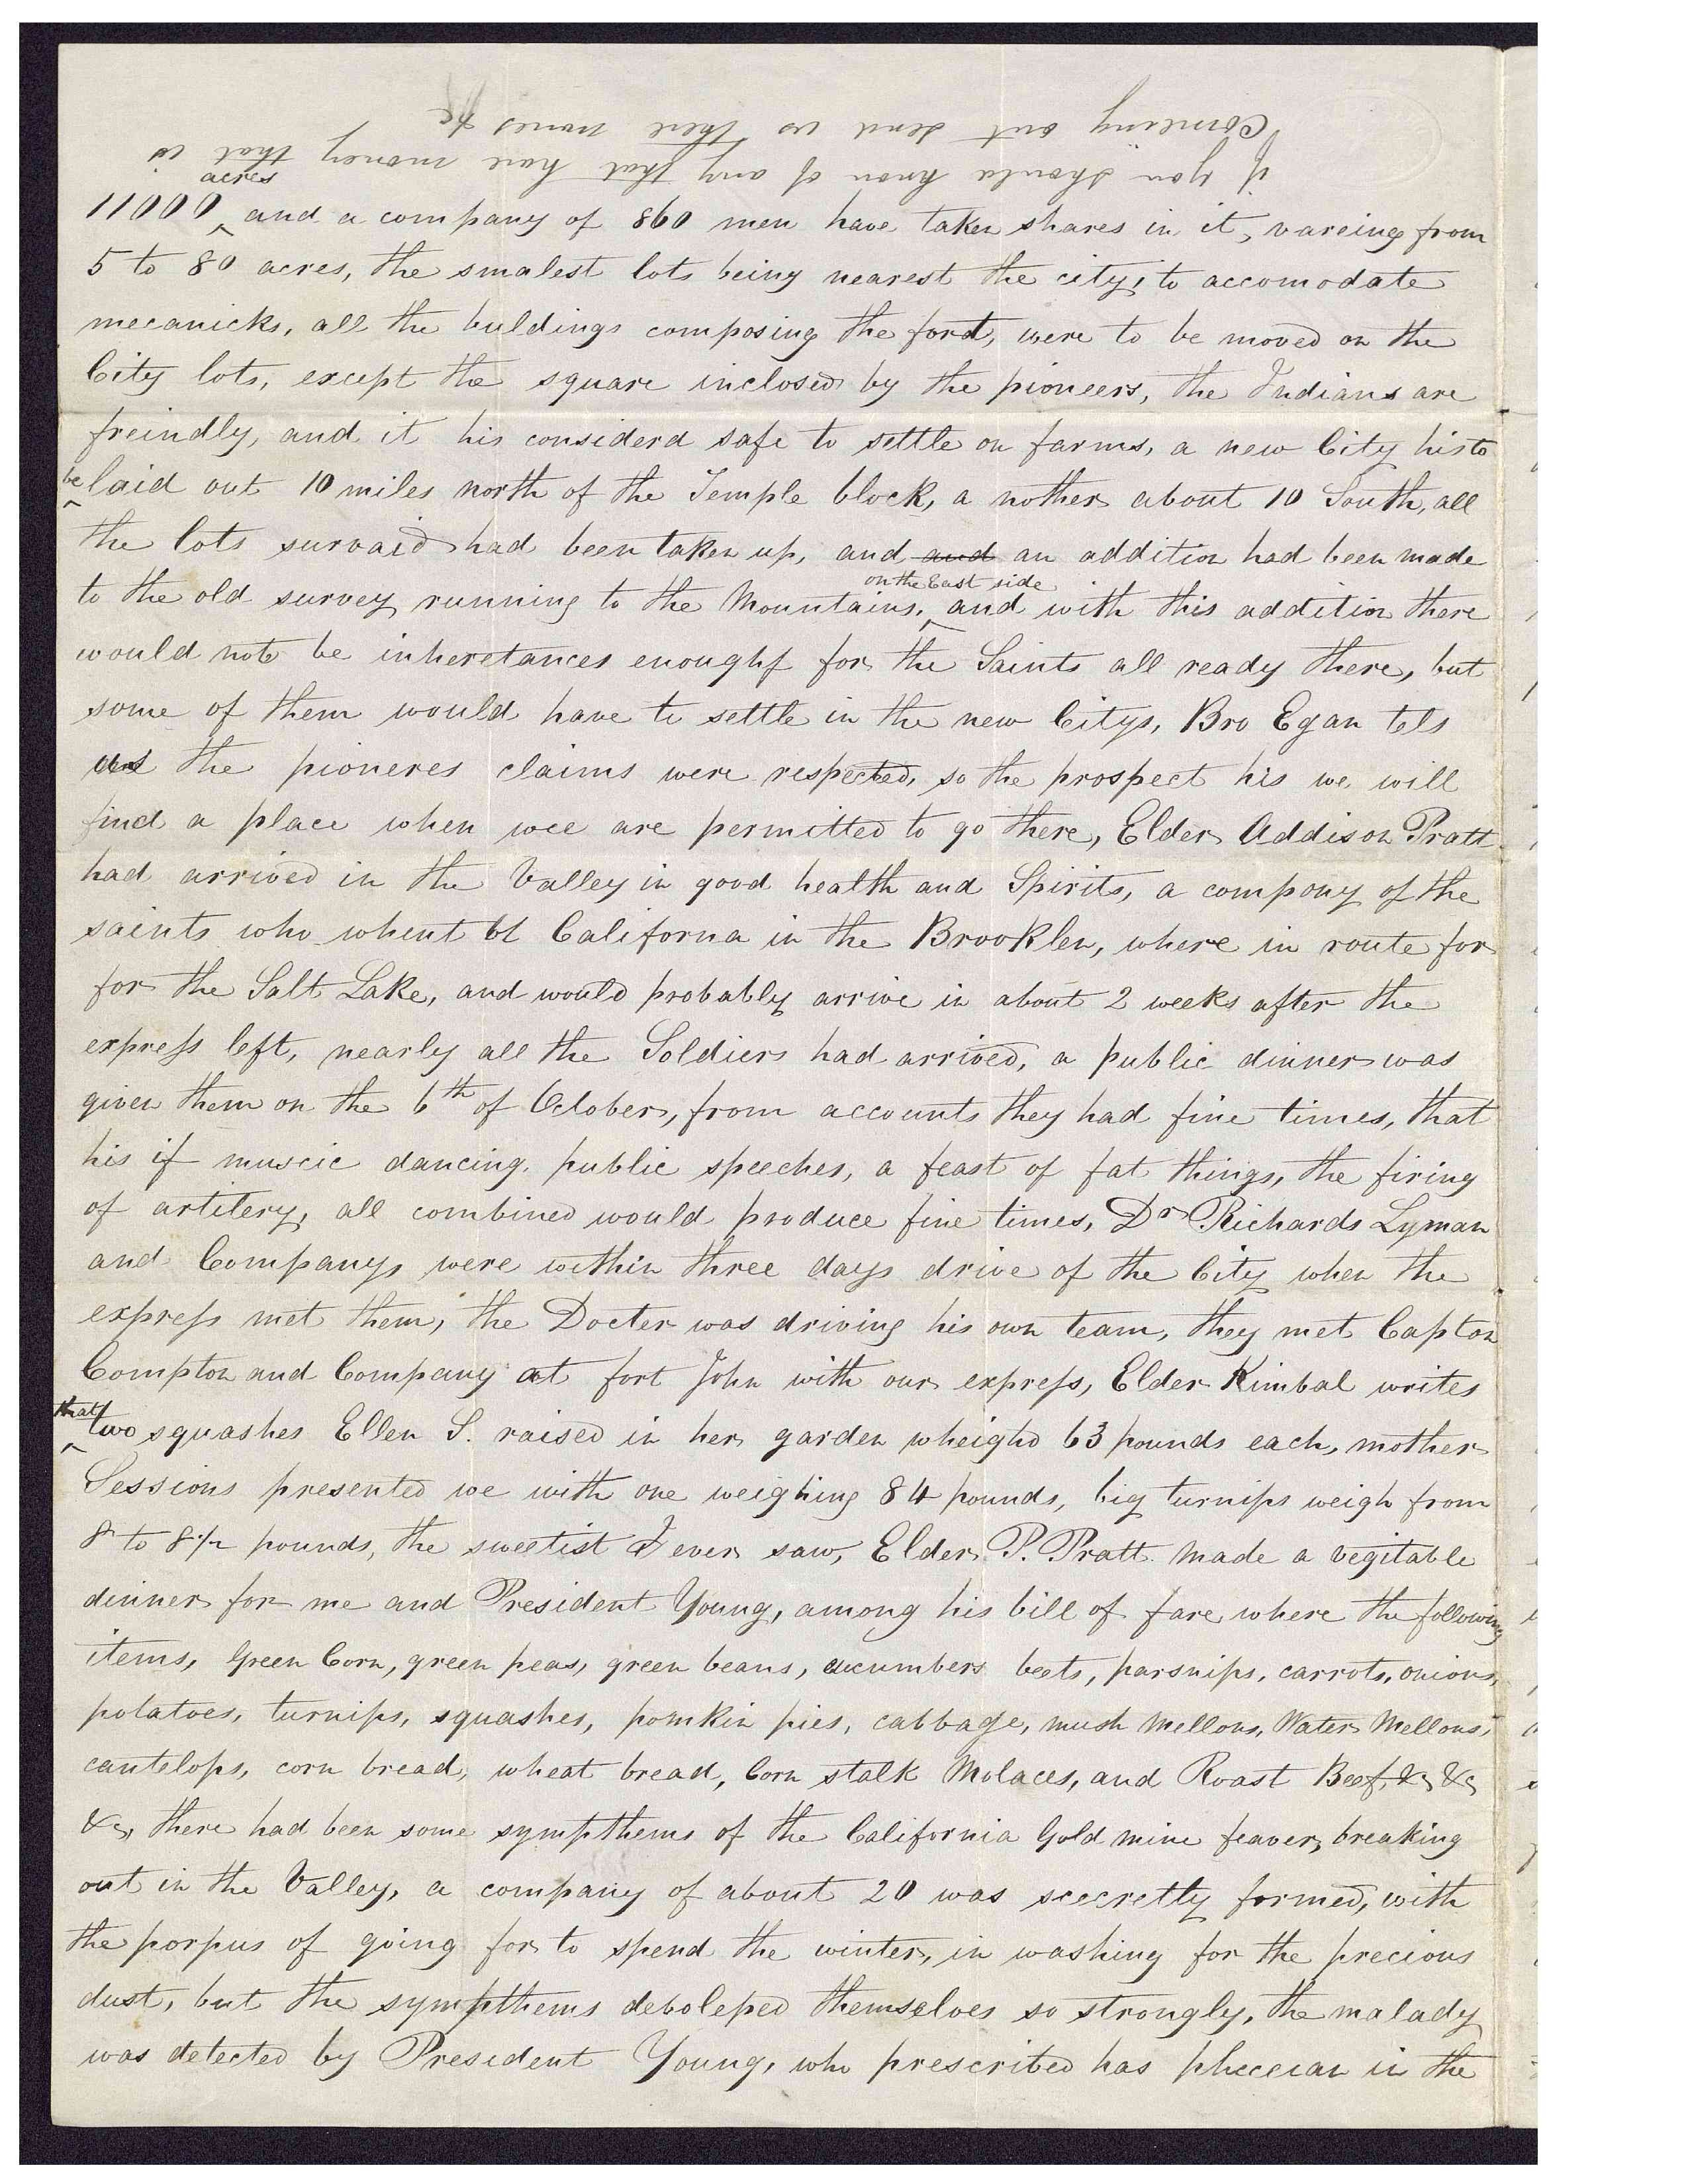 if you should know of any that have money that is
comeing out send us there names &c
11000 ^acres and a company of 860 men have taken shares in it, vareing from
5 to 80 acres, the smalest lots being nearest the city, to accomodate
mecanicks, all the buldings composing the fort, were to be moved on the
City lots, except the square inclosed by the pioneers, the Indians are
freindly, and it his considerd safe to settle on farms, a new City his to
^be laid out 10 miles north of the Temple block, a nother about 10 South, all
the lots survaid had been taken up, and and an addition had been made
to the old survey running to the Mountains, ^on the East side and with this addition there
would not be inheretances enoughf for the Saints all ready there, but
some of them would have to settle in the new Citys, Bro Egan tels
us the pioneres claims were respected, so the prospect his we will
find a place when wee are permitted to go there, Elder Addison Pratt
had arrived in the Valley in good health and Spirits, a compony of the
saints who whent to Californa in the Brooklen, where in route for
for the Salt Lake, and would probably arrive in about 2 weeks after the
express left, nearly all the Soldiers had arrived, a public dinner was
given them on the 6th of October, from accounts they had fine times, that
his if muscic dancing, public speeches, a feast of fat things, the firing
of artilery, all combined would produce fine times, Dr Richards Lyman
and Companys were within three days drive of the City when the
express met them, the Docter was driving his own team, they met Capton
Compton and Company at fort John with our express, Elder Kimbal writes
^that two squashes Ellen S. raised in her garden wheighd 63 pounds each, mother
Sessions presented we with one weighing 84 pounds, big turnips weigh from
8 to 8 1/2 pounds, the sweetist I ever saw, Elder P. Pratt made a vegitable
dinner for me and President Young, among his bill of fare where the following
items, Green Corn, green peas, green beans, cucumbers beets, parsnips, carrots, onions,
potatoes, turnips, squashes, pomkin pies, cabbage, mush Mellons, Water Mellons,
cantelops, corn bread, wheat bread, Corn stalk Molaces, and Roast Beef, &c &c
&c, there had been some sympthems of the California Gold mine feaver, breaking
out in the Valley, a company of about 20 was scecretty formed, with
the porpus of going for to spend the winter, in washing for the precious
dust, but the sympthems deboleped themselves so strongly, the malady
was detected by President Young, who prescribed has phecian in the